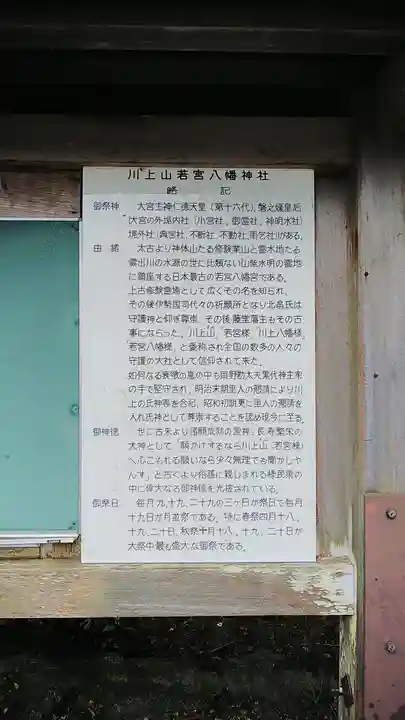 川上山若宮八幡神社
略記
御祭神 大宮主神仁徳天皇(第十六代)、磐之媛皇后
大宮の外境内社(小宮社、御霊社、神明水社)
境外社(典宮社、不断社、不動社、雨乞社)がある。
由緒 太古より神体山たる修験業山と霊水地たる
雲出川の水源の世に比類ない山紫水明の霊地
に鎮座する日本最古の若宮八幡宮である。
上古修験霊場として広くその名を知られ、
その後伊勢国司代々の祈願所となり北畠氏は
守護神と仰ぎ尊崇、その後藤堂藩主もその古
事にならった。川上山、若宮様、川上八幡様、
若宮八幡様、と愛称され全国の数多の人々の
守護の大社として信仰されて来た。
如何なる衰微の嵐の中も岡野勘太夫累代神主家
の手で堅守され、明治末期里人の懇請により川
上の氏神等を合祀、昭和初期更に里人の懇請を
入れ氏神として尊崇することを認め現今に至る。
御神徳 世に古来より諸願成就の霊神、長寿繁栄の
大神として「願かけするなら川上山(若宮様)
へ、こもれる願いなら少々無理でも聞かしゃ
んす」と古くより俗謡に親しまれる様民衆の
中に偉大なる御神徳を光被されている。
御祭日 毎月九、十九、二十九の三ヶ日が祭日で毎月
十九日が月並祭である。特に春祭四月十八、
十九、二十日、秋祭十月十八、十九、二十日が
大祭中最も盛大な御祭である。